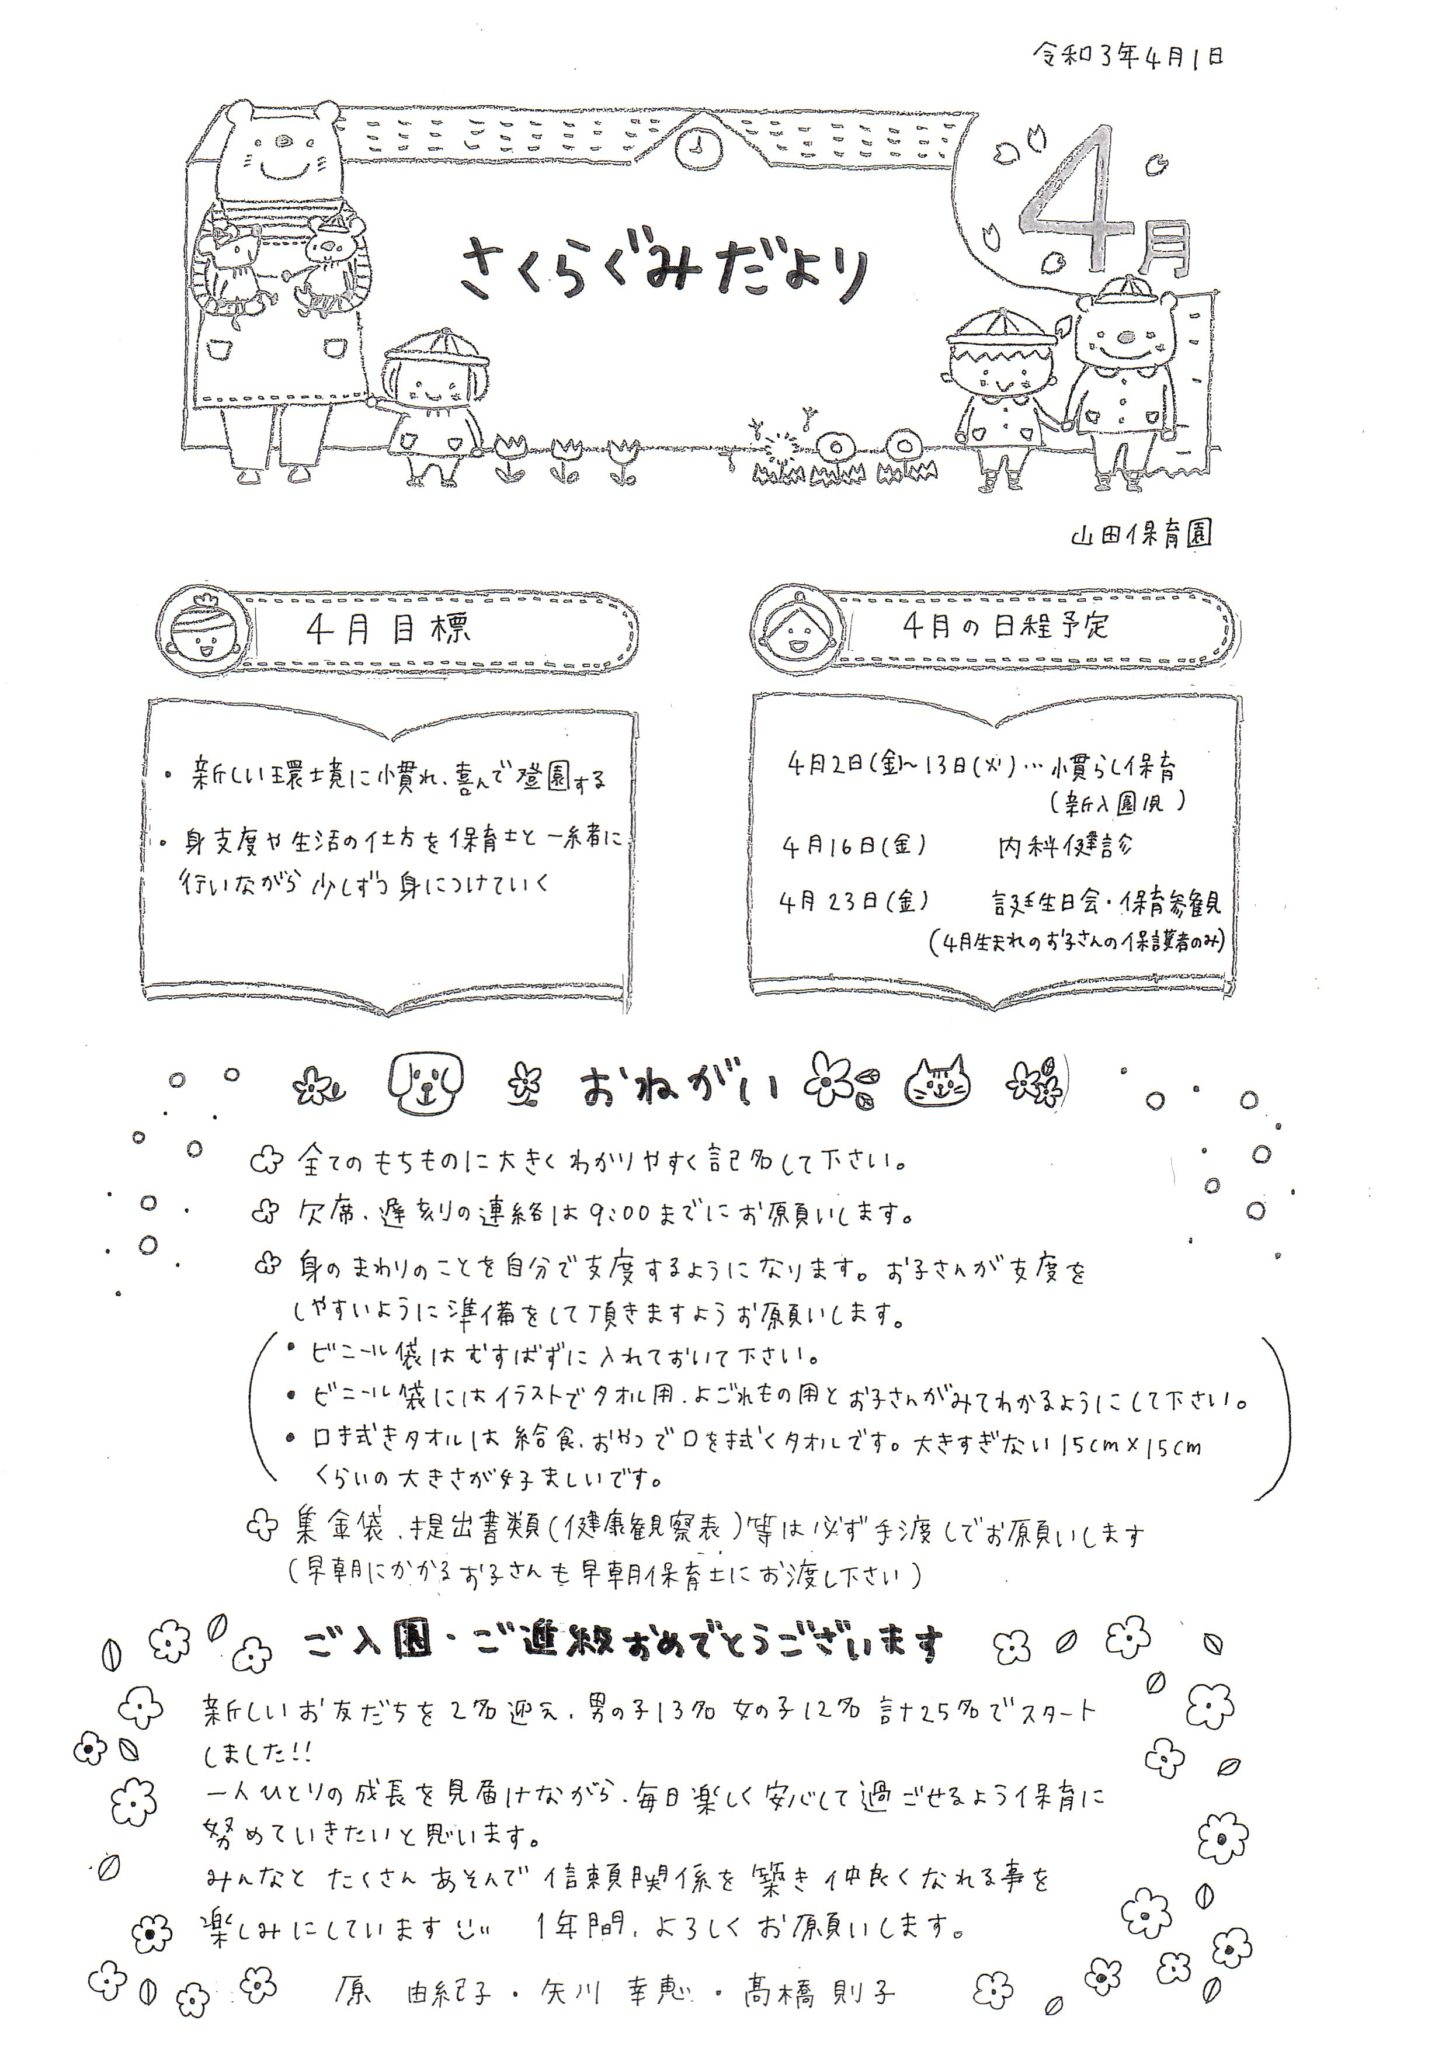 令和3年4月1日
4月
さくらぐみだより
山田保育園
4月目標
・新しい環境に慣れ、喜んで登園する
・身支度や生活の仕方を保育士と一緒に
行いながら少しずつ身につけていく
4月の日程予定
4月2日(金)~13日(火)…慣らし保育
(新入園児)
4月16日(金) 内科健診
4月23日(金) 誕生日会・保育参観
(4月生まれのお子さんの保護者のみ)
おねがい
全てのもちものに大きくわかりやすく記名して下さい。
欠席、遅刻の連絡は9:00までにお願いします。
身のまわりのことを自分で支度するようになります。お子さんが支度を
しやすいように準備をして頂きますようお願いします。
・ビニール袋はむすばずに入れておいて下さい。
・ビニール袋にはイラストでタオル用、よごれもの用とお子さんがみてわかるようにして下さい。
・口拭きタオルは給食、おやつで口を拭くタオルです。大きすぎない15cm×15cm
くらいの大きさが好ましいです。
集金袋、提出書類(健康観察表)等は必ず手渡しでお願いします
(早朝にかかるお子さんも早朝保育士にお渡し下さい)
ご入園・ご進級おめでとうございます
新しいお友だちを2名迎え、男の子13名 女の子12名 計25名でスタート
しました!!
一人ひとりの成長を見届けながら、毎日楽しく安心して過ごせるよう保育に
努めていきたいと思います。
みんなと たくさん あそんで 信頼関係を築き仲良くなれる事を
楽しみにしています 1年間、よろしくお願いします。
原 由紀子・矢川 幸恵・髙橋 則子